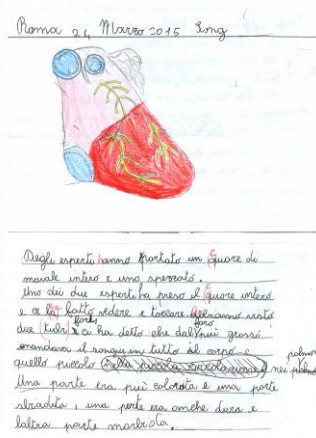 Roma 24 Marzo 2015 Song
Degli esperti hanno portato un cuore di
maiale intero e uno spezzato.
Uno dei due esperti ha preso il cuore intero
e ce la fatto vedere e toccare abbiamo visto
due (tubi) fori
e ci ha detto che dal foro più grosso
mandava il sangue in tutto il corpo e
quello piccolo nei polmo
polmo
Una parte era più colorata e una parte
sbiadita, una parte era anche dura e
laltra parte morbida.